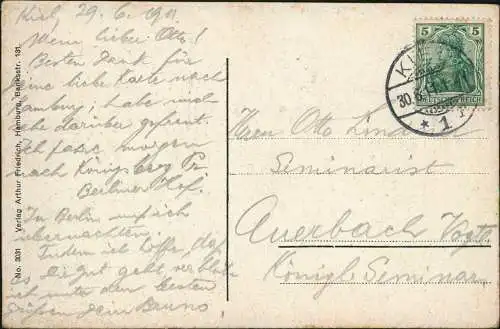 Kiel 29.6.1911
Mein lieber Otto!
Besten Dank für
Deine liebe Karte nach
Hamburg; habe mich
sehr darüber gefreut.
Ich fahre morgen
nach Königsberg Pr
Berliner Hof.
In Berlin muß ich
übernachten.
Indem ich hoffe, daß
es Dir gut geht, verbleibe
ich unter den besten
Grüßen Dein Bruno.
No. 3031 Verlag Arthur Friedrich, Hamburg, Bankstr. 131.
5 5
DEUTSCHES REICH
30.6.11
* 1
Herrn Otto
Seminarist
Auerbach Vogtl
Königl. Seminar